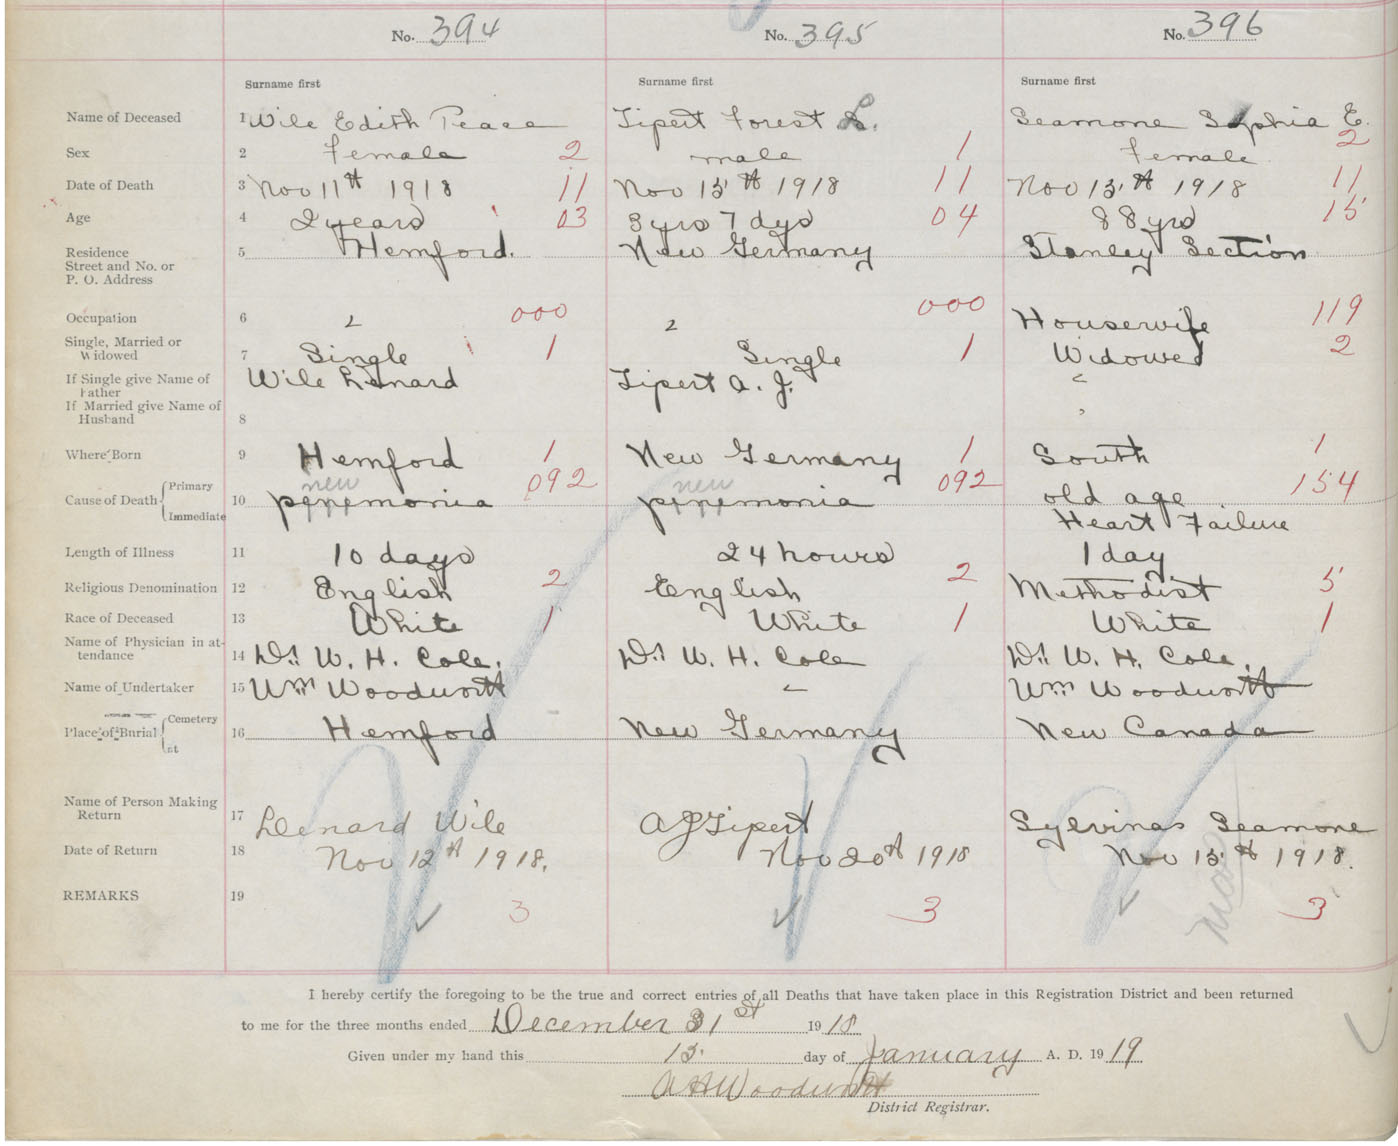 No. 394 No. 395 No. 396
Surname first Surname first Surname first
Name of Deceased 1 Wile Edith Peace Tipert Forest L. Seamone Sophia E.
Sex 2 female 2 male 1 female 2
Date of Death 3 Nov 11th 1918 11 Nov 15th 1918 11 Nov 15th 1918 11
Age 4 2 years 03 3 yrs 7 dys 04 88 yrs 15
Residence 5 Hemford. New Germany Stanley Section
Street and No. or
P. O. Address
Occupation 6 000 000 Housewife 119
Single, Married or
Widowed 7 Single 1 Single 1 Widowed 2
If Single give Name of Wile Lenard Tipert A. J.
Father
If Married give Name of
Husband 8
Where Born 9 Hemford 1 New Germany 1 South 1
Cause of Death Primary 10 new 092 new 092 old age 154
Immediate Heart Failure
Length of Illness 11 10 days 24 hours 1 day
Religious Denomination 12 English 2 English 2 Methodist 5
Race of Deceased 13 White 1 White 1 White 1
Name of Physician in at-
tendance 14 Dr. W. H. Cole. Dr. W. H. Cole Dr. W. H. Cole.
Name of Undertaker 15 Wm Woodworth Wm Woodworth
Place of Burial Cemetery 16 Hemford New Germany New Canada
at
Name of Person Making
Return 17 Lenard Wile A J Tipert Sylvinas Seamone
Date of Return 18 Nov 12th 1918. Nov 20th 1918 Nov 15th 1918.
REMARKS 19 3 3 3
I hereby certify the foregoing to be the true and correct entries of all Deaths that have taken place in this Registration District and been returned
to me for the three months ended December 31st 1918
Given under my hand this 15. day of January A. D. 1919
A H Woodworth
District Registrar.